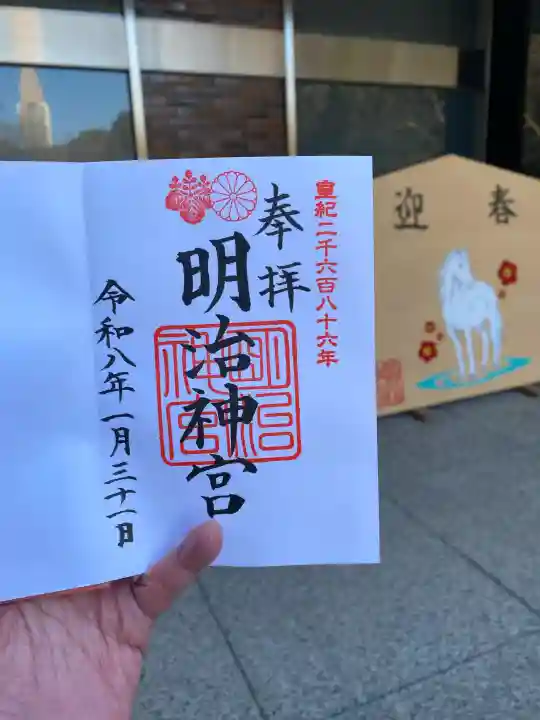 皇紀二千六百八十六年
奉拝
明治神宮
明治神宮
令和八年一月三十一日
迎春